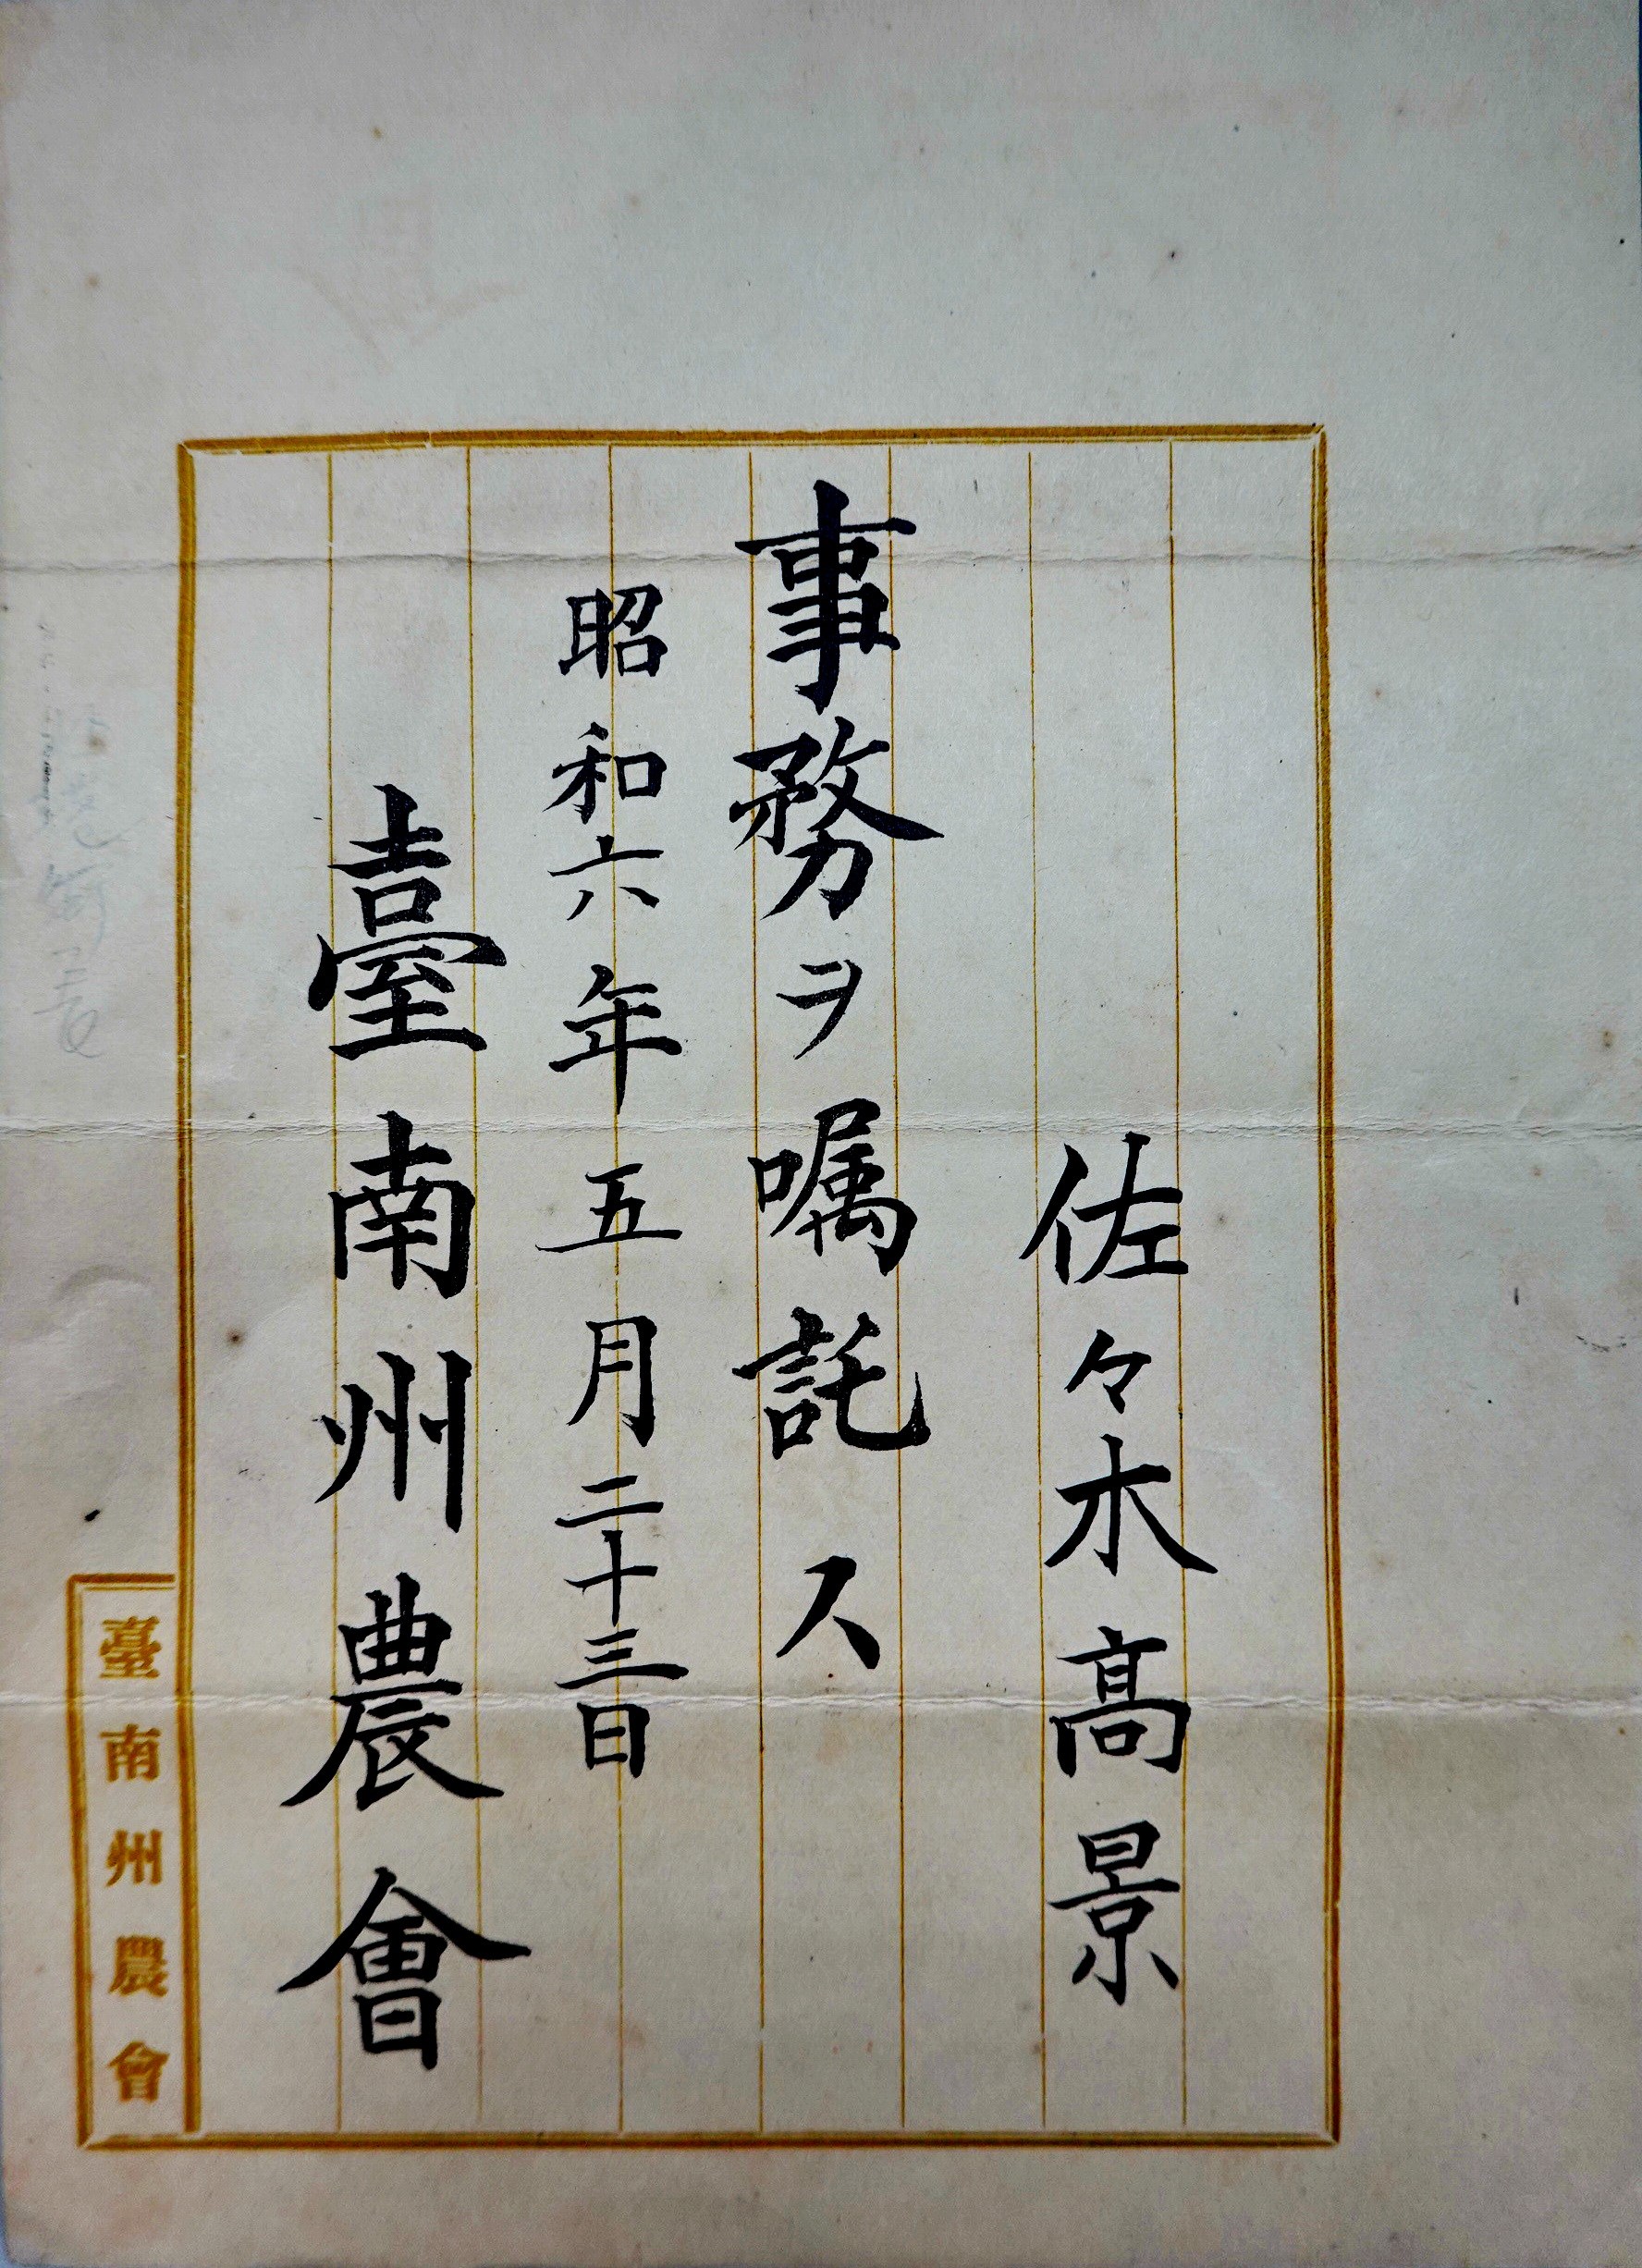 佐々木高景
事務ヲ嘱託ス
昭和六年五月二十三日
臺南州農會
臺南州農會